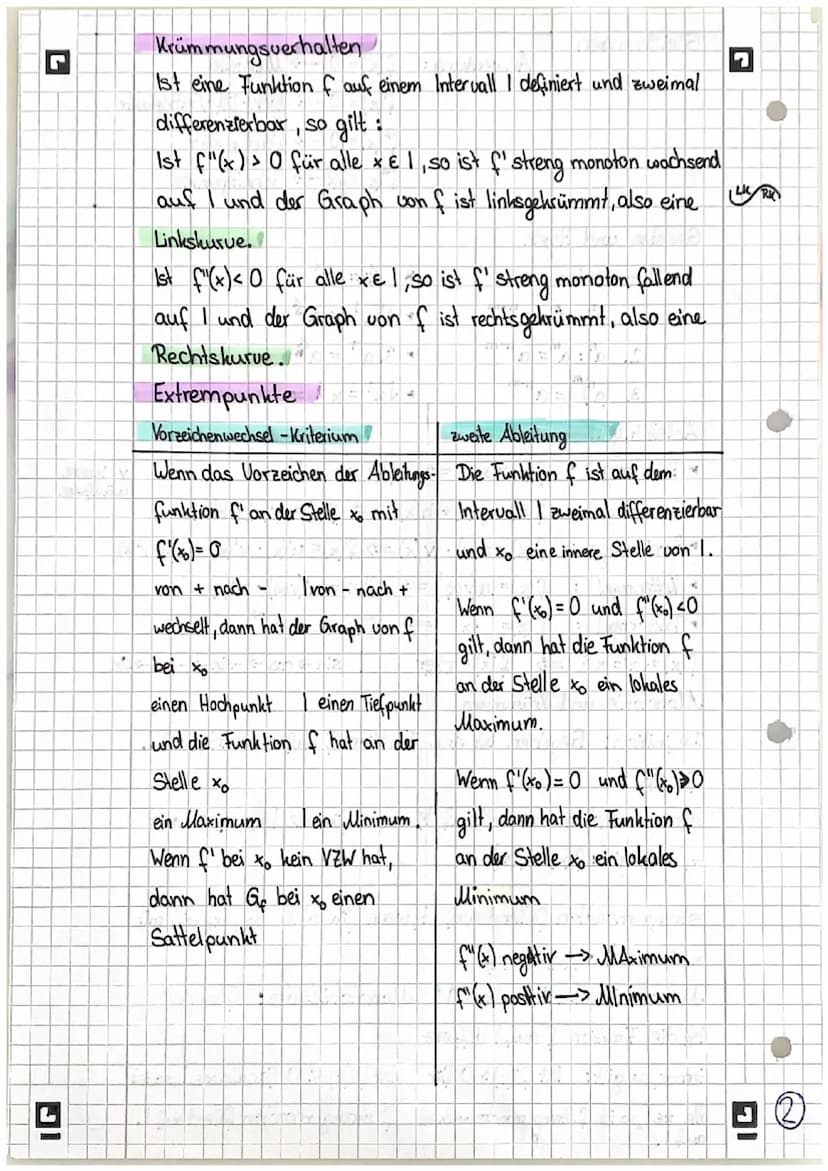 Krümmungsverhalten
Ist eine Funktion f auf einem Intervall I definiert und zweimal
differenzierbar, so gilt:
Ist f"(x) > 0 für alle x ∈ I, so ist f' streng monoton wachsend
auf I und der Graph von f ist linksgekrümmt, also eine
LK RK
Linkskurve.
Ist f"(x) < 0 für alle x ∈ I, so ist f' streng monoton fallend
auf I und der Graph von f ist rechtsgekrümmt, also eine
Rechtskurve.
Extrempunkte
Vorzeichenwechsel-Kriterium
Wenn das Vorzeichen der Ableitungs-
funktion f' an der Stelle x₀ mit
f'(x₀) = 0
von + nach - | von - nach +
wechselt, dann hat der Graph von f
bei x₀
einen Hochpunkt | einen Tiefpunkt
und die Funktion f hat an der
Stelle x₀
ein Maximum | ein Minimum.
Wenn f' bei x₀ kein VZW hat,
dann hat G_f bei x₀ einen
Sattelpunkt
zweite Ableitung
Die Funktion f ist auf dem
Intervall I zweimal differenzierbar
und x₀ eine innere Stelle von I.
Wenn f'(x₀) = 0 und f"(x₀) < 0
gilt, dann hat die Funktion f
an der Stelle x₀ ein lokales
Maximum.
Wenn f'(x₀) = 0 und f"(x₀) > 0
gilt, dann hat die Funktion f
an der Stelle x₀ ein lokales
Minimum
f"(x) negativ → MAximum
f"(x) positiv → MInimum
2